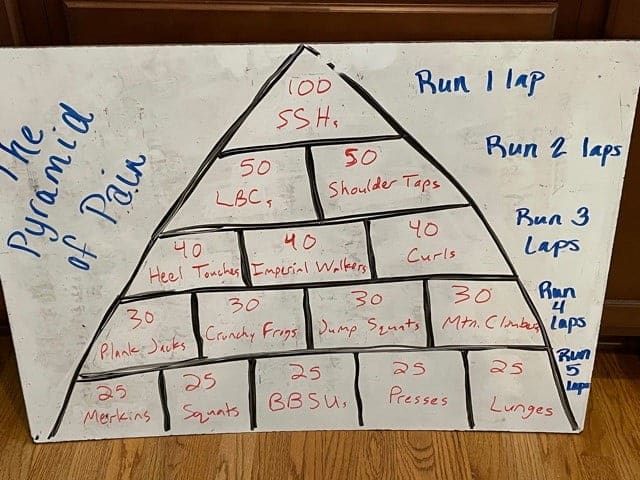 The
Pyramid
of Pain
100
SSHs
Run 1 lap
50
LBCs
50
Shoulder Taps
Run 2 laps
40
Heel Touches
40
Imperial Walkers
40
Curls
Run 3
Laps
30
Plank Jacks
30
Crunchy Frogs
30
Jump Squats
30
Mtn. Climbers
Run
4
laps
25
Merkins
25
Squats
25
BBSUs
25
Presses
25
Lunges
Run
5
laps